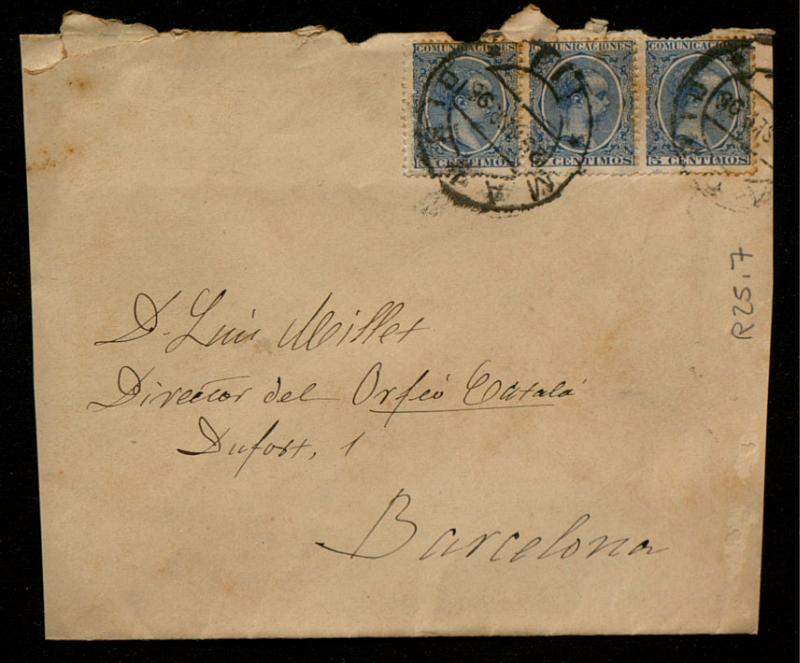 COMUNICACIONES COMUNICACIONES COMUNICACIONES
5 CENTIMOS 5 CENTIMOS 5 CENTIMOS
MADRID
R25.7
D. Luis Millet
Director del Orfeó Catalá
Dufort, 1
Barcelona